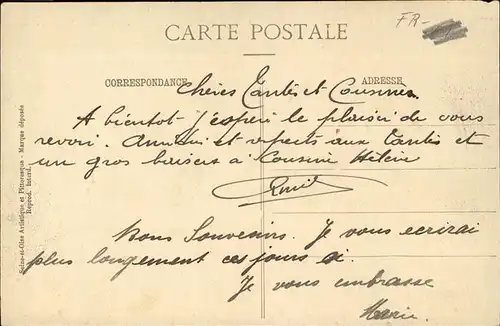 FR-
CARTE POSTALE
CORRESPONDANCE
ADRESSE
Chères Tantes et Cousines
A bientôt j'espère le plaisir de vous
revoir. Amitiés et respects aux tantes et
un gros baisers à Cousine Hélène
Emile
Bons Souvenirs. Je vous ecrirai
plus longement ces jours ci.
Je vous embrasse
Marie.
Seine-et-Oise Artistique et Pittoresque - Marque déposée
Reprod. Interd.